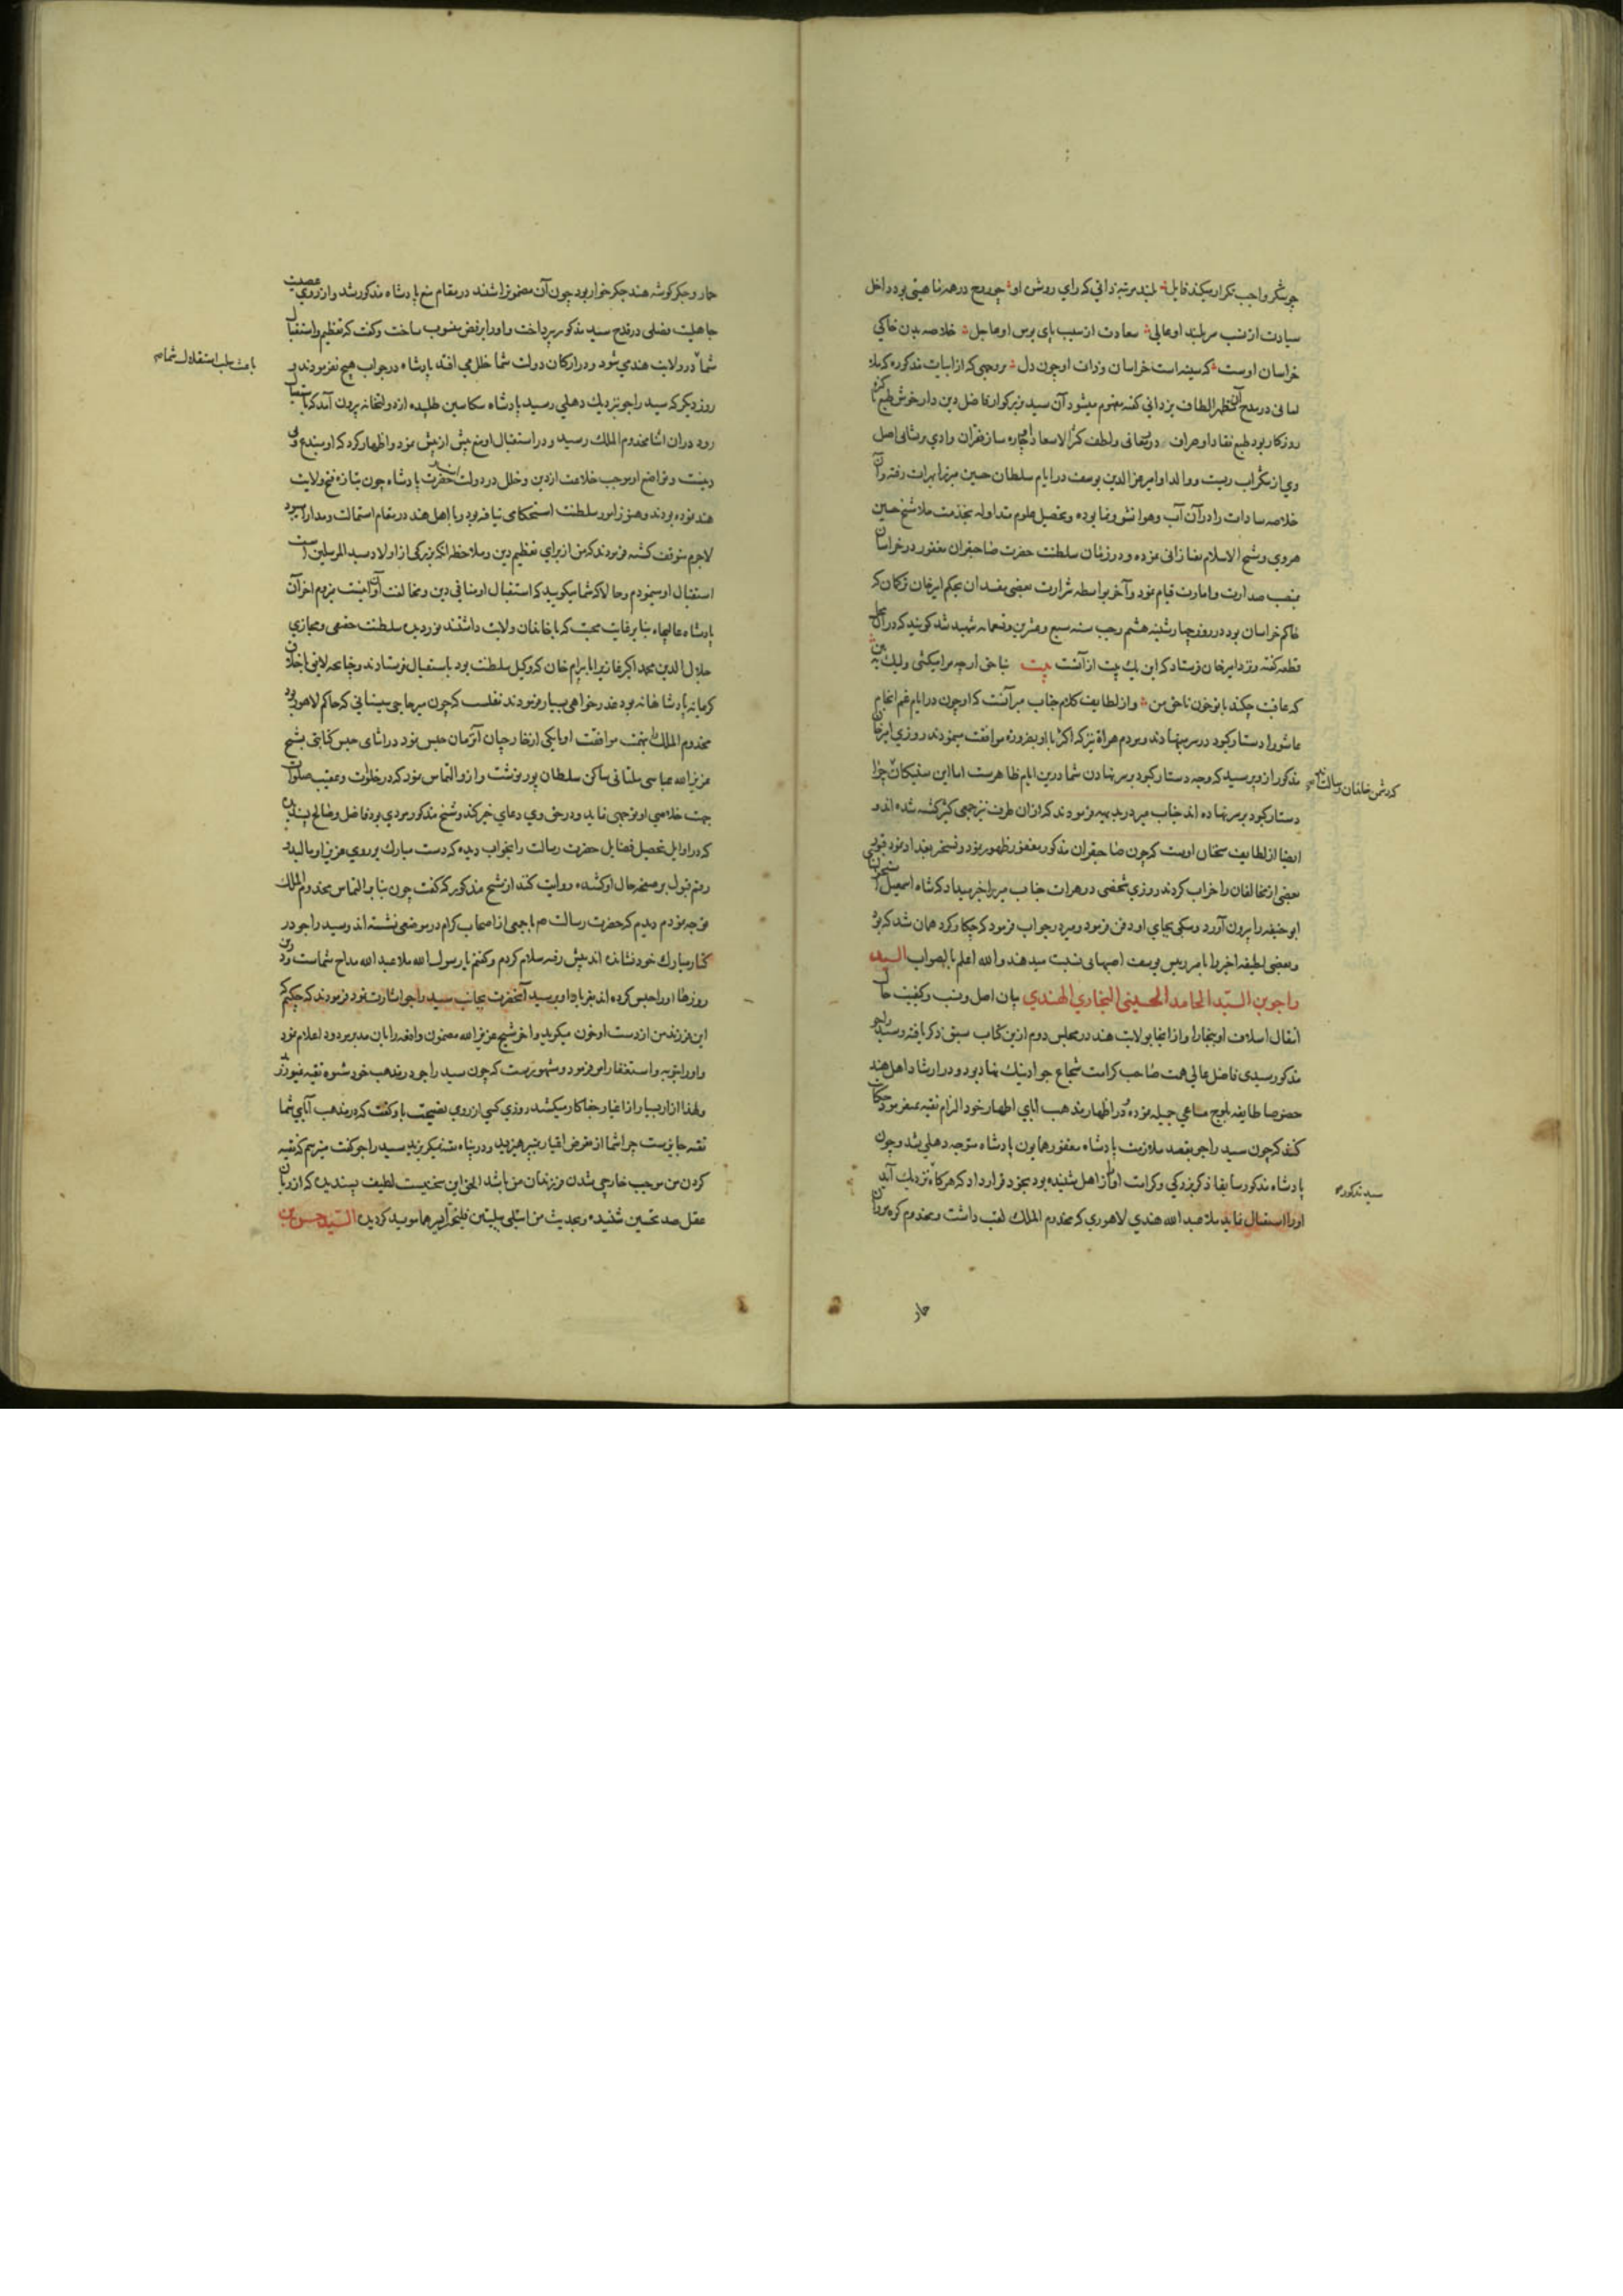 چو شکر واجب تکرار میکند قایل بلند مرتبه زانی که رای روشن او چو روح در همه ناحیتی بود داخل
سیادت از نسب سربلند او عالی سعادت از سبب پای بوس او عاجل خلاصه بدن خاکی
خراسان اوست که سینه است خراسان و ذات او چون دل بر وجهی که از ابیات مذکوره که ملا
لسانی در مدح آن مظهر الطاف یزدانی گفته مفهوم میشود آن سید بزرگوار فاضل دین دار خوش طبع
روزکار بود طبع نقاد او هرات
وی از آب و والد او امیر عز الدین یوسف در ایام سلطان حسین میرزا بهرات رفته و آن
خلاصه سادات را در آن آب و هوا نشو و نما بوده و تحصیل علوم متداوله بخدمت ملا شیخ حسین
هروی و شیخ الاسلام تفتازانی نموده و در زمان سلطنت حضرت صاحبقران مغفور در خراسان
بمنصب صدارت و امارت قیام نمود و آخر بواسطه شرارت بعضی مفسدان بحکم امیر خان ترکمان که
حاکم خراسان بود در روز چهارشنبه هشتم رجب سنه سبع و عشرین و تسعمایه شهید شد گویند که در آن محل
قطعه گفته و نزد امیر خان فرستاد که این یک بیت از آنست بیت بناحق ارچه مرا میکشی ولیک ببین
که عاقبت چکند با تو خون ناحق من و از لطایف کلام جناب میر آنست که او چون در ایام غم انجام
عاشورا دستار کبود در سر مینهادند و مردم هراة نیز که اکثر با او بضرورة موافقت مینمودند روزی امیر خان
مذکور از و پرسید که وجه دستار کبود بر سر نهادن شما درین ایام ظاهرست اما این سنیکان چرا
که دشمن خاندان رسالت‌اند
دستار کبود بر سر نهاده اند جناب میر در بدیهه فرمودند که از آن طرف نیز جمعی کثیر کشته شده اند و
ایضا از لطایف سخنان اوست که چون صاحبقران مذکور مغفور ظهور نمود و تسخیر بغداد نمود قبور
بعضی از مخالفان را خراب کردند روزی شخصی در هرات جناب میر را خبر میداد که شاه اسمعیل
ابو حنیفه را بیرون آورد و سکی بجای او دفن فرمود و میر در جواب فرمود که چکار کرد همان شد که بود
و بعضی لطیفه اخیر را بامیر یوسف اصبهانی نسبت میدهند و الله اعلم بالصواب السید
راجو بن السید الحامد الحسینی البخاری الهندی بیان اصل و نسب و کیفیت حال
انتقال اسلاف او ببخارا و از انجا بولایت هند در مجلس دوم ازین کتاب سبق ذکر یافته و سید راجو
مذکور سیدی فاضل عالی همت صاحب کرامت شجاع جواد نیک نهاد بود و در ارشاد اهل هند
خصوصا طایفه بلوج مساعی جمیله نموده و در اظهار مذهب آبای اطهار خود الزام تقیه نمیفرمود حکایت
کنند که چون سید راجو بقصد ملازمت پادشاه مغفور همایون پادشاه متوجه دهلی شد و چون
پادشاه مذکور سابقا ذکر بزرکی و کرامت او از اهل شنیده بود بخود قرار داد که هرکاه نزدیک آید
سید مذکور
او را استقبال نماید ملا عبد الله هندی لاهوری که مخدوم الملک لقب داشت و مخدوم کره مردان
حمار
حمار و جکر کوشه هند جکر خوار بود چون آن مضمون را شنید در مقام منع پادشاه مذکور شد و از روی عصبیت
جاهلیت فصلی در قدح سید مذکور بپرداخت و او را برفض منسوب ساخت و گفت که تعظیم و استقبال
شما در ولایت هندی شود و در ارکان دولت شما خلل می افتد پادشاه در جواب هیچ نفرمودند و
باعث سلب استقلال شما
روز دیکر که سید راجو نزدیک دهلی رسید پادشاه سکاسن طلبیده از دولتخانه بیرون آمد که باستقبال
رود در آن اثنا مخدوم الملک رسید و در استقبال او منع بیش از پیش نمود و اظهار کرد که او مبتدع و بی
دینست و تواضع او موجب خلاعت از دین و خلل در دولت است حضرت پادشاه چون بتازه فتح ولایت
هند نموده بودند و هنوز امور سلطنت استحکامی نیافته بود و با اهل هند در مقام استمالت و مدارا بود
لاجرم متوقف کشته فرمودند که من از برای تعظیم دین و ملاحظه انکه بزرکی از اولاد سید المرسلین است
استقبال او مینمودم و حالا که شما میکویید که استقبال او منافی دین و مخالف آنست نروم آخر آن
پادشاه عالیجاه بنا بر غایت محبت که با خاندان ولایت داشتند نور دیده سلطنت حقیقی و مجازی
جلال الدین محمد اکبر غازی را با بیرام خان که وکیل سلطنت بود باستقبال فرستادند و چنانچه لایق اخلاق
کریمانه پادشاهانه بود عذر خواهی بسیار فرمودند نقلست که چون میر حاجی سیستانی که حاکم لاهور بود
مخدوم الملک را بتهمت موافقت او با یکی از خارجیان آن زمان حبس نمود در اثنای حبس کتابتی بشیخ
عزیز الله عباسی ملتانی ساکن سلطان پور نوشت و از و التماس نمود که در خلوات و عقیب صلوات
جهت خلاصی او توجهی نماید و در حق وی دعای خیر کند و شیخ مذکور مردی بود فاضل و صالح
که در اوایل تحصیل فضایل حضرت رسالت را بخواب دیده که دست مبارک بر روی عزیز او مالیده
رقم قبول بر صفحه حال او کشیده روایت کنند از شیخ مذکور که گفت چون بنا بر التماس مخدوم الملک
توجه نمودم دیدم که حضرت رسالت ص با جمعی از اصحاب کرام در موضعی نشسته اند و سید راجو در
کنار مبارک خود نشانده اند پیش رفته سلام کردم و گفتم یا رسول الله ملا عبد الله مداح شماست و درین
روزها او را حبس کرده اند بفریاد او برسید آنحضرت بجانب سید راجو اشارت نموده فرمودند که چکنم که
این فرزند من از دست او خون میکرید و آخر شیخ عزیز الله مضمون واقعه را بان مدبر مردود اعلام نمود
و او را بتوبه و استغفار امر فرمود و مشهورست که چون سید راجو در مذهب خود شیوه تقیه نمیورزید
و لهذا ازار بسیار از اغیار جفا کار میکشید روزی کسی از روی نصیحت با و گفت که در مذهب آبای شما
تقیه جایزست چرا شما از تعرض اغیار نپرهیزید و در پناه تقیه نمیکریزید سید راجو گفت میترسم که تقیه
کردن من موجب خارجی شدن فرزندان من باشد الحق این سخنیست لطیف پسندیده که از زبان
عقل صد تحسین شنیده و بحدیث من ابتلی ببلیتین فلیختر ایسرهما موید کردیده السید حسن بن